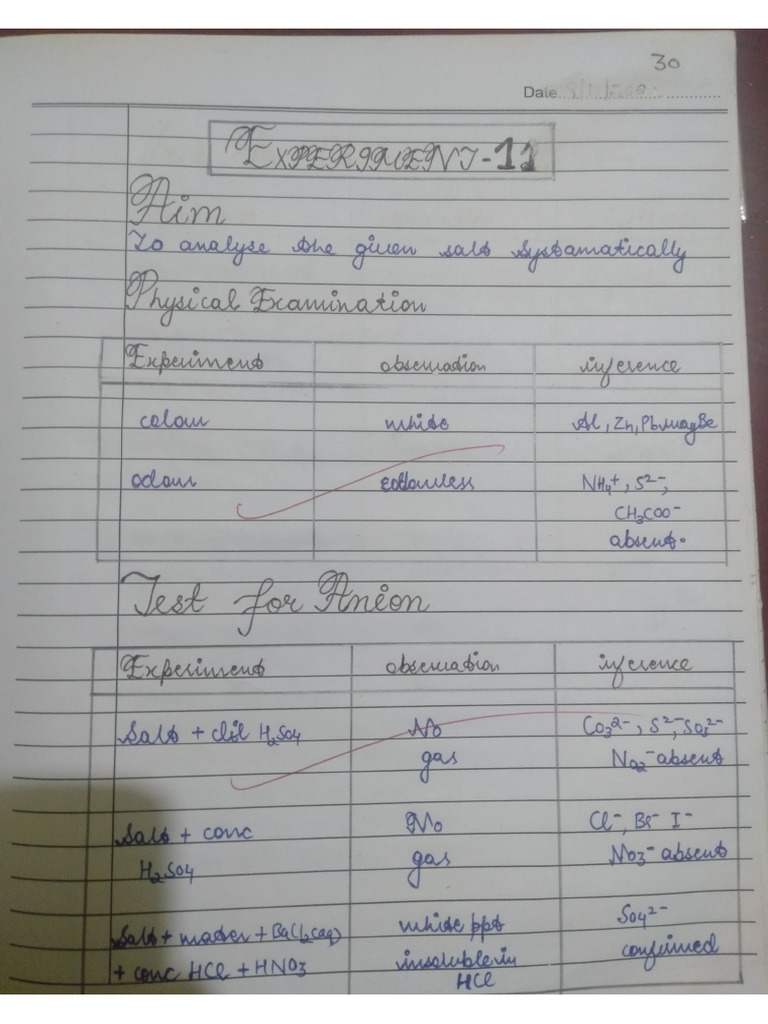 30
Date
EXPERIMENT-11
Aim
To analyse the given salt systamatically
Physical Examination
Experiment observation inference
colour white Al, Zn, Pb may be
odour odourless NH₄⁺, S²⁻,
CH₃COO⁻
absent.
Test for Anion
Experiment observation inference
Salt + dil H₂SO₄ No CO₃²⁻, S²⁻, SO₃²⁻
gas NO₂⁻ absent
Salt + conc No Cl⁻, Br⁻ I⁻
H₂SO₄ gas NO₃⁻ absent
Salt + water + BaCl₂(aq) white ppt SO₄²⁻
+ conc HCl + HNO₃ insoluble in confirmed
HCl